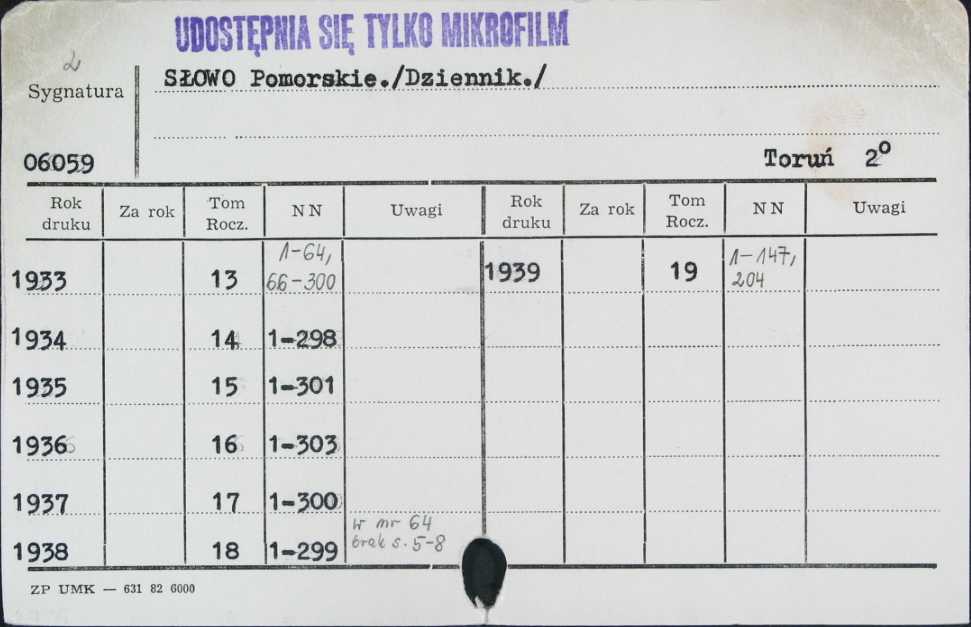 UDOSTĘPNIA SIĘ TYLKO MIKROFILM
2
Sygnatura
SŁOWO Pomorskie./Dziennik./
06059
Toruń 2º
Rok druku Za rok Tom Rocz. NN Uwagi Rok druku Za rok Tom Rocz. NN Uwagi
1933 13 1-64, 66-300 1939 19 1-147, 204
1934 14 1-298
1935 15 1-301
1936 16 1-303
1937 17 1-300
1938 18 1-299 w nr 64 brak s. 5-8
ZP UMK — 631 82 6000